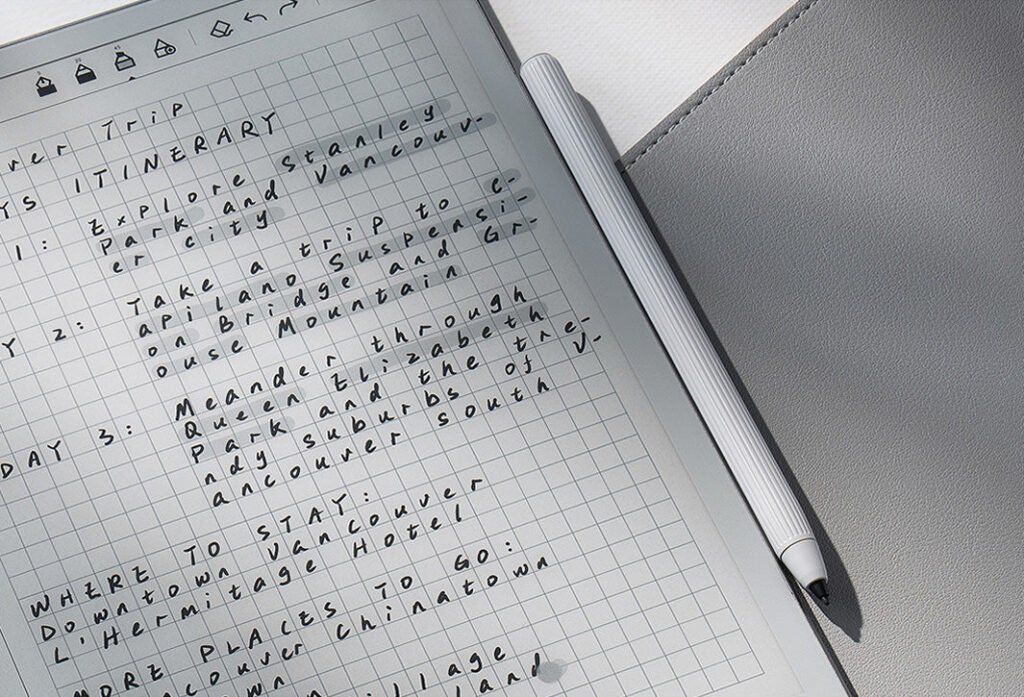 ver Trip
YS ITINERARY
1: Explore Stanley
Park and Vancouv-
er city
Y 2: Take a trip to C-
apilano Suspensi-
on Bridge and Gr-
ouse Mountain
DAY 3: Meander through
Queen Elizabeth
Park and the tre-
ndy suburbs of V-
ancouver south
WHERE TO STAY:
Downtown Vancouver
L'Hermitage Hotel
MORE PLACES TO GO:
ncouver Chinatown
wn
llage
land